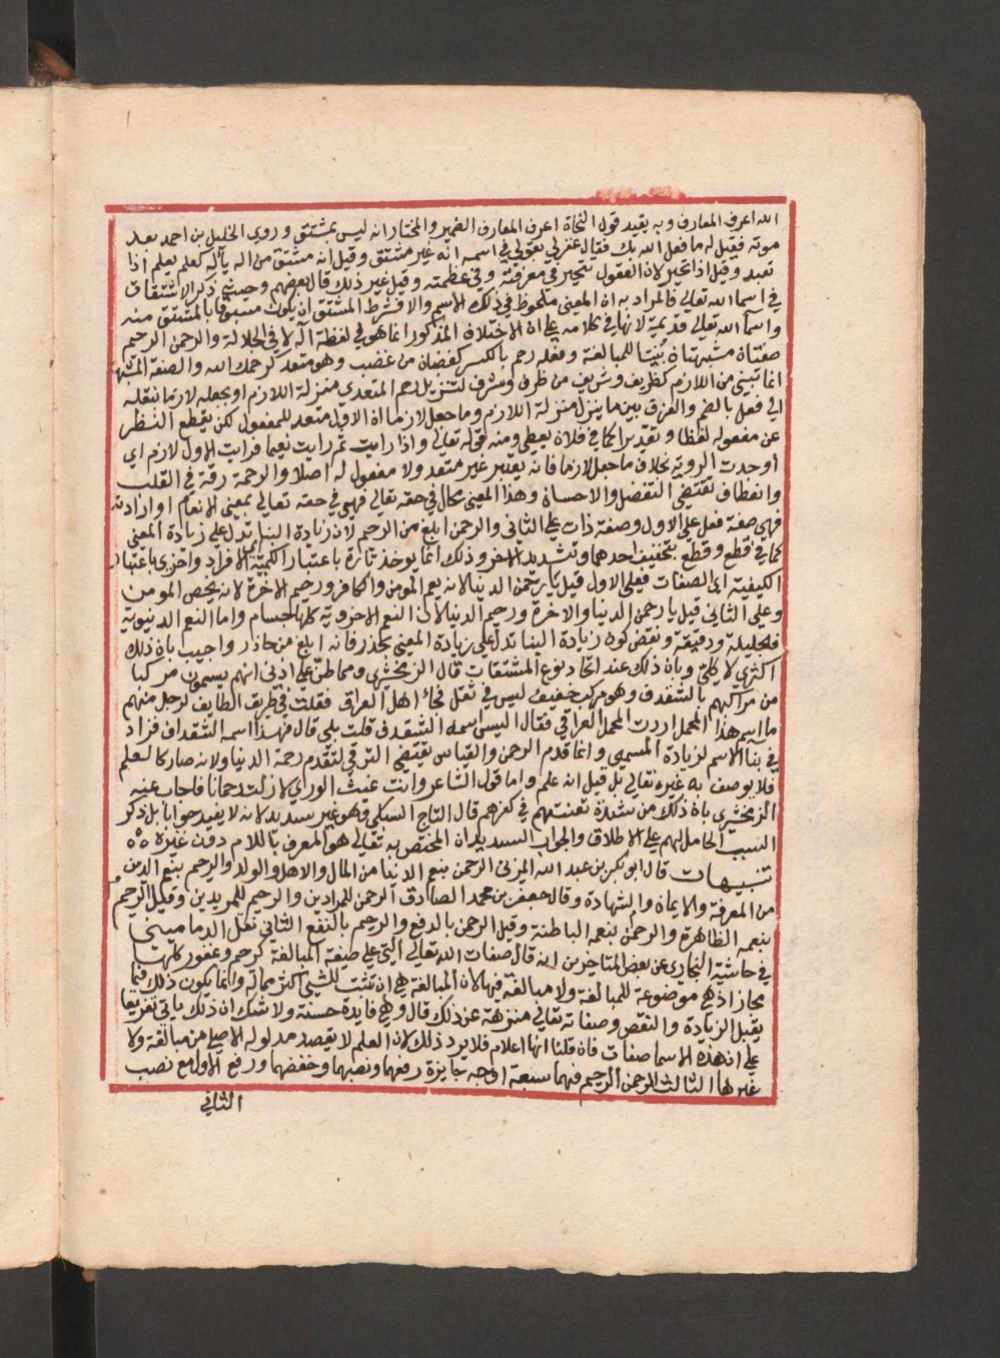 الله اعرف المعارف وبه يقيد قول النحاة اعرف المعارف الضمير والمختار انه ليس بمشتق وروي الخليل بن احمد بعد
موته فقيل له ما فعل الله بك فقال غفر لي بقولي في اسمه انه غير مشتق وقيل انه مشتق من اله يأله كعلم يعلم اذا
تعبد وقيل اذا تحير لان العقول تتحير في معرفته وفي عظمته وقيل غير ذلك قال بعضهم وحيث ذكر الاشتقاق
في اسما الله تعالي فالمراد به ان المعني ملحوظ في ذلك الاسم والا فشرط المشتق ان يكون مسبوقا بالمشتق منه
واسما الله تعالي قديمة لانها في كلامه علي ان الاختلاف المذكور انما هو في لفظة اله لا في الجلالة والرحمن الرحيم
صفتان مشبهتان بنيتا للمبالغة وفعله رحم بالكسر كغضبان من غضب وهو متعد كرحمك الله والصفة المشبهة
انما تبني من اللازم كظريف وشريف من ظرف وشرف لتنزيل رحم المتعدي منزلة اللازم او بجعله لازما بنقله
الي فعل بالضم والفرق بين ما ينزل منزلة اللازم وما جعل لازما ان الاول متعد للمفعول لكن يقطع النظر
عن مفعوله لفظا وتقديرا كما في فلان يعطي ومنه قوله تعالي واذا رايت ثم رايت نعيما فرايت الاول لازم اي
اوجدت الروية بخلاف ما جعل لازما فانه يعتبر غير متعد ولا مفعول له اصلا والرحمة رقة في القلب
وانعطاف تقتضي التفضل والاحسان وهذا المعني محال في حقه تعالي فهي في حقه تعالي بمعني الانعام او ارادته
فهي صفة فعل علي الاول وصفة ذات علي الثاني والرحمن ابلغ من الرحيم لان زيادة البنا تدل علي زيادة المعني
كما في قطع وقطع بتخفيف احدهما وتشديد الاخر وذلك انما يوخذ تارة باعتبار الكمية اي الافراد واخري باعتبار
الكيفية اي الصفات فعلي الاول قيل يا رحمن الدنيا لانه يعم المومن والكافر ورحيم الاخرة لانه يخص المومن
وعلي الثاني قيل يا رحمن الدنيا والاخرة ورحيم الدنيا لان النعم الاخروية كلها جسام واما النعم الدنيوية
فجليلة ودقيقة ونقض كون زيادة البنا تدل علي زيادة المعني بحذر فانه ابلغ من حاذر واجيب بان ذلك
اكثري لا كلي وبان ذلك عند اتحاد نوع المشتقات قال الزمخشري ومما طن علي اذني انهم يسمون مركبا
من مراكبهم بالشقدف وهو مركب خفيف ليس في ثقل محامل اهل العراق فقلت في طريق الطايف لرجل منهم
ما اسم هذا المحمل اردت المحمل العراقي فقال اليس اسمه الشقدف قلت بلي قال فهذا اسمه الشقنداف فزاد
في بنا الاسم لزيادة المسمي وانما قدم الرحمن والقياس يقتضي الترقي لتقدم رحمة الدنيا ولانه صار كالعلم
فلا يوصف به غيره تعالي بل قيل انه علم واما قول الشاعر وانت غيث الوري لا زلت رحمانا فاجاب عنه
الزمخشري بان ذلك من شدة تعنتهم في كفرهم قال التاج السبكي وهو غير سديد لانه لا يفيد جوابا بل ذكر
السبب الحامل لهم علي الاطلاق والجواب السديد ان المختص به تعالي هو المعرف باللام دون غيره
تنبيهات قال ابو بكر بن عبد الله المزني الرحمن بنعم الدنيا من المال والاهل والولد والرحيم بنعم الدين
من المعرفة والايمان والشهادة وقال جعفر بن محمد الصادق الرحمن للمرادين والرحيم للمريدين وقيل الرحيم
بنعمه الظاهرة والرحمن بنعمه الباطنة وقيل الرحمن بالدفع والرحيم بالنفع الثاني نقل الدماميني
في حاشية البخاري عن بعض المتاخرين انه قال صفات الله تعالي التي علي صيغة المبالغة كرحيم وغفور كلها
مجاز اذ هي موضوعة للمبالغة ولا مبالغة فيها لان المبالغة هي ان تثبت للشي اكثر مما له وانما يكون ذلك فيما
يقبل الزيادة والنقص وصفاته تعالي منزهة عن ذلك قال وهي فايدة حسنة ولا شك ان ذلك ياتي تفريعا
علي ان هذه الاسما صفات فان قلنا انها اعلام فلا يرد ذلك لان العلم لا يقصد مدلوله الاصلي من مبالغة ولا
غيرها الثالث الرحمن الرحيم فيهما سبعة اوجه جايزة رفعهما ونصبهما وخفضهما ورفع الاول مع نصب
الثاني